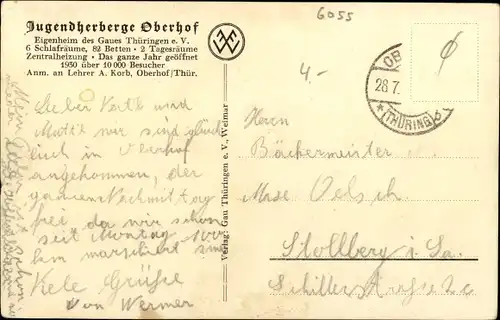 6055
Jugendherberge Oberhof
Eigenheim des Gaues Thüringen e. V.
6 Schlafräume, 82 Betten · 2 Tagesräume
Zentralheizung · Das ganze Jahr geöffnet
1930 über 10 000 Besucher
Anm. an Lehrer A. Korb, Oberhof/Thür.
4.-
OB
28.7.
(THÜRING)
Verlag: Gau Thüringen e. V., Weimar
Lieber und
wir sind glück
lich in Oberhof
angekommen, der
ganzen Nachmittag
frei da wir schon
seit Montag 100
km marschiert sind
Grüße
von Werner
Herrn
Bäckermeister
Max Oelsch
Stollberg i. Sa.
Schillerstrasse